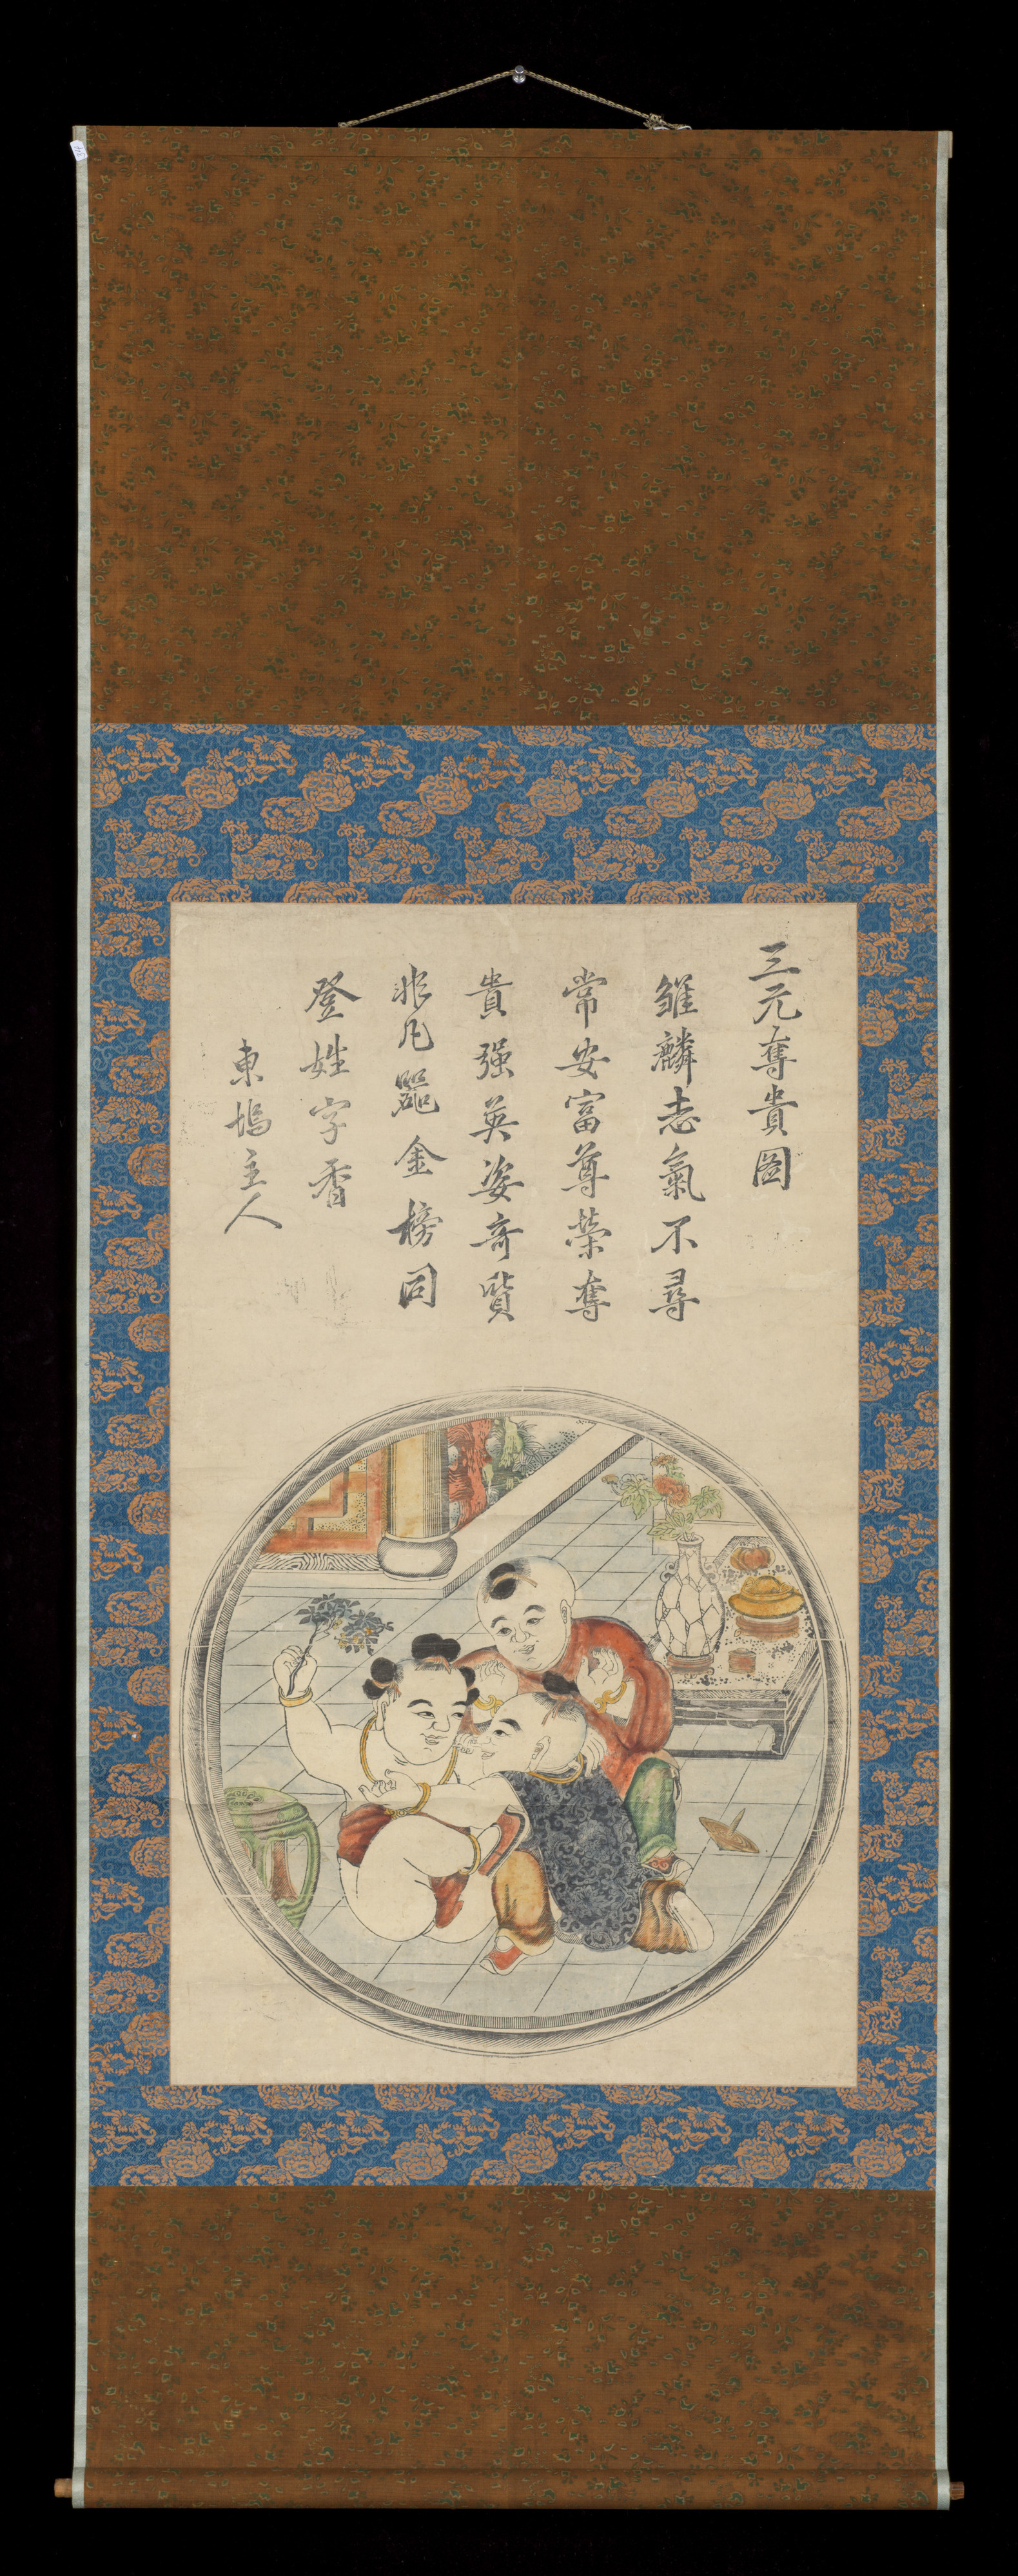 三元奪貴圖
雛麟志氣不尋
常安富尊榮奪
貴强英姿竒質
非凡器金榜同
登姓字香
東塢主人